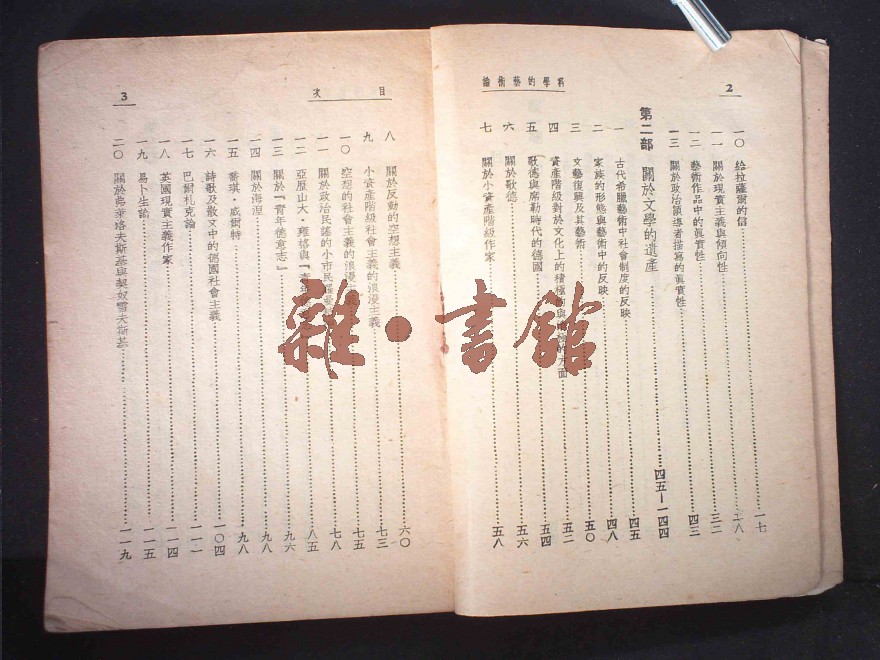 2
科學的藝術論
一〇 給拉薩爾的信……一七
一一 關於現實主義與傾向性……二八
一二 藝術作品中的眞實性……四三
一三 關於政治領導者描寫的眞實性……四四
第二部 關於文學的遺產……四五—一四四
一 古代希臘藝術中社會制度的反映……四五
二 家族的形態與藝術中的反映……四八
三 文藝復興及其藝術……五〇
四 資產階級對於文化上的積極的與 的方面……五二
五 歌德與席勒時代的德國……五四
六 關於歌德……五六
七 關於小資產階級作家……五八
目次
3
八 關於反動的空想主義……六〇
九 小資產階級社會主義的浪漫主義……七三
一〇 空想的社會主義的浪漫……七五
一一 關於政治民謠的小市民……七八
一二 亞歷山大·雍格與『青年……八五
一三 關於『青年德意志』……九六
一四 關於海涅……九八
一五 喬琪·威爾特……九八
一六 詩歌及散文中的德國社會主義……一〇四
一七 巴爾札克論……一一一
一八 英國現實主義作家……一一四
一九 易卜生論……一一五
二〇 關於弗萊洛夫斯基與契奴雪夫斯基……一一九
雜·書館